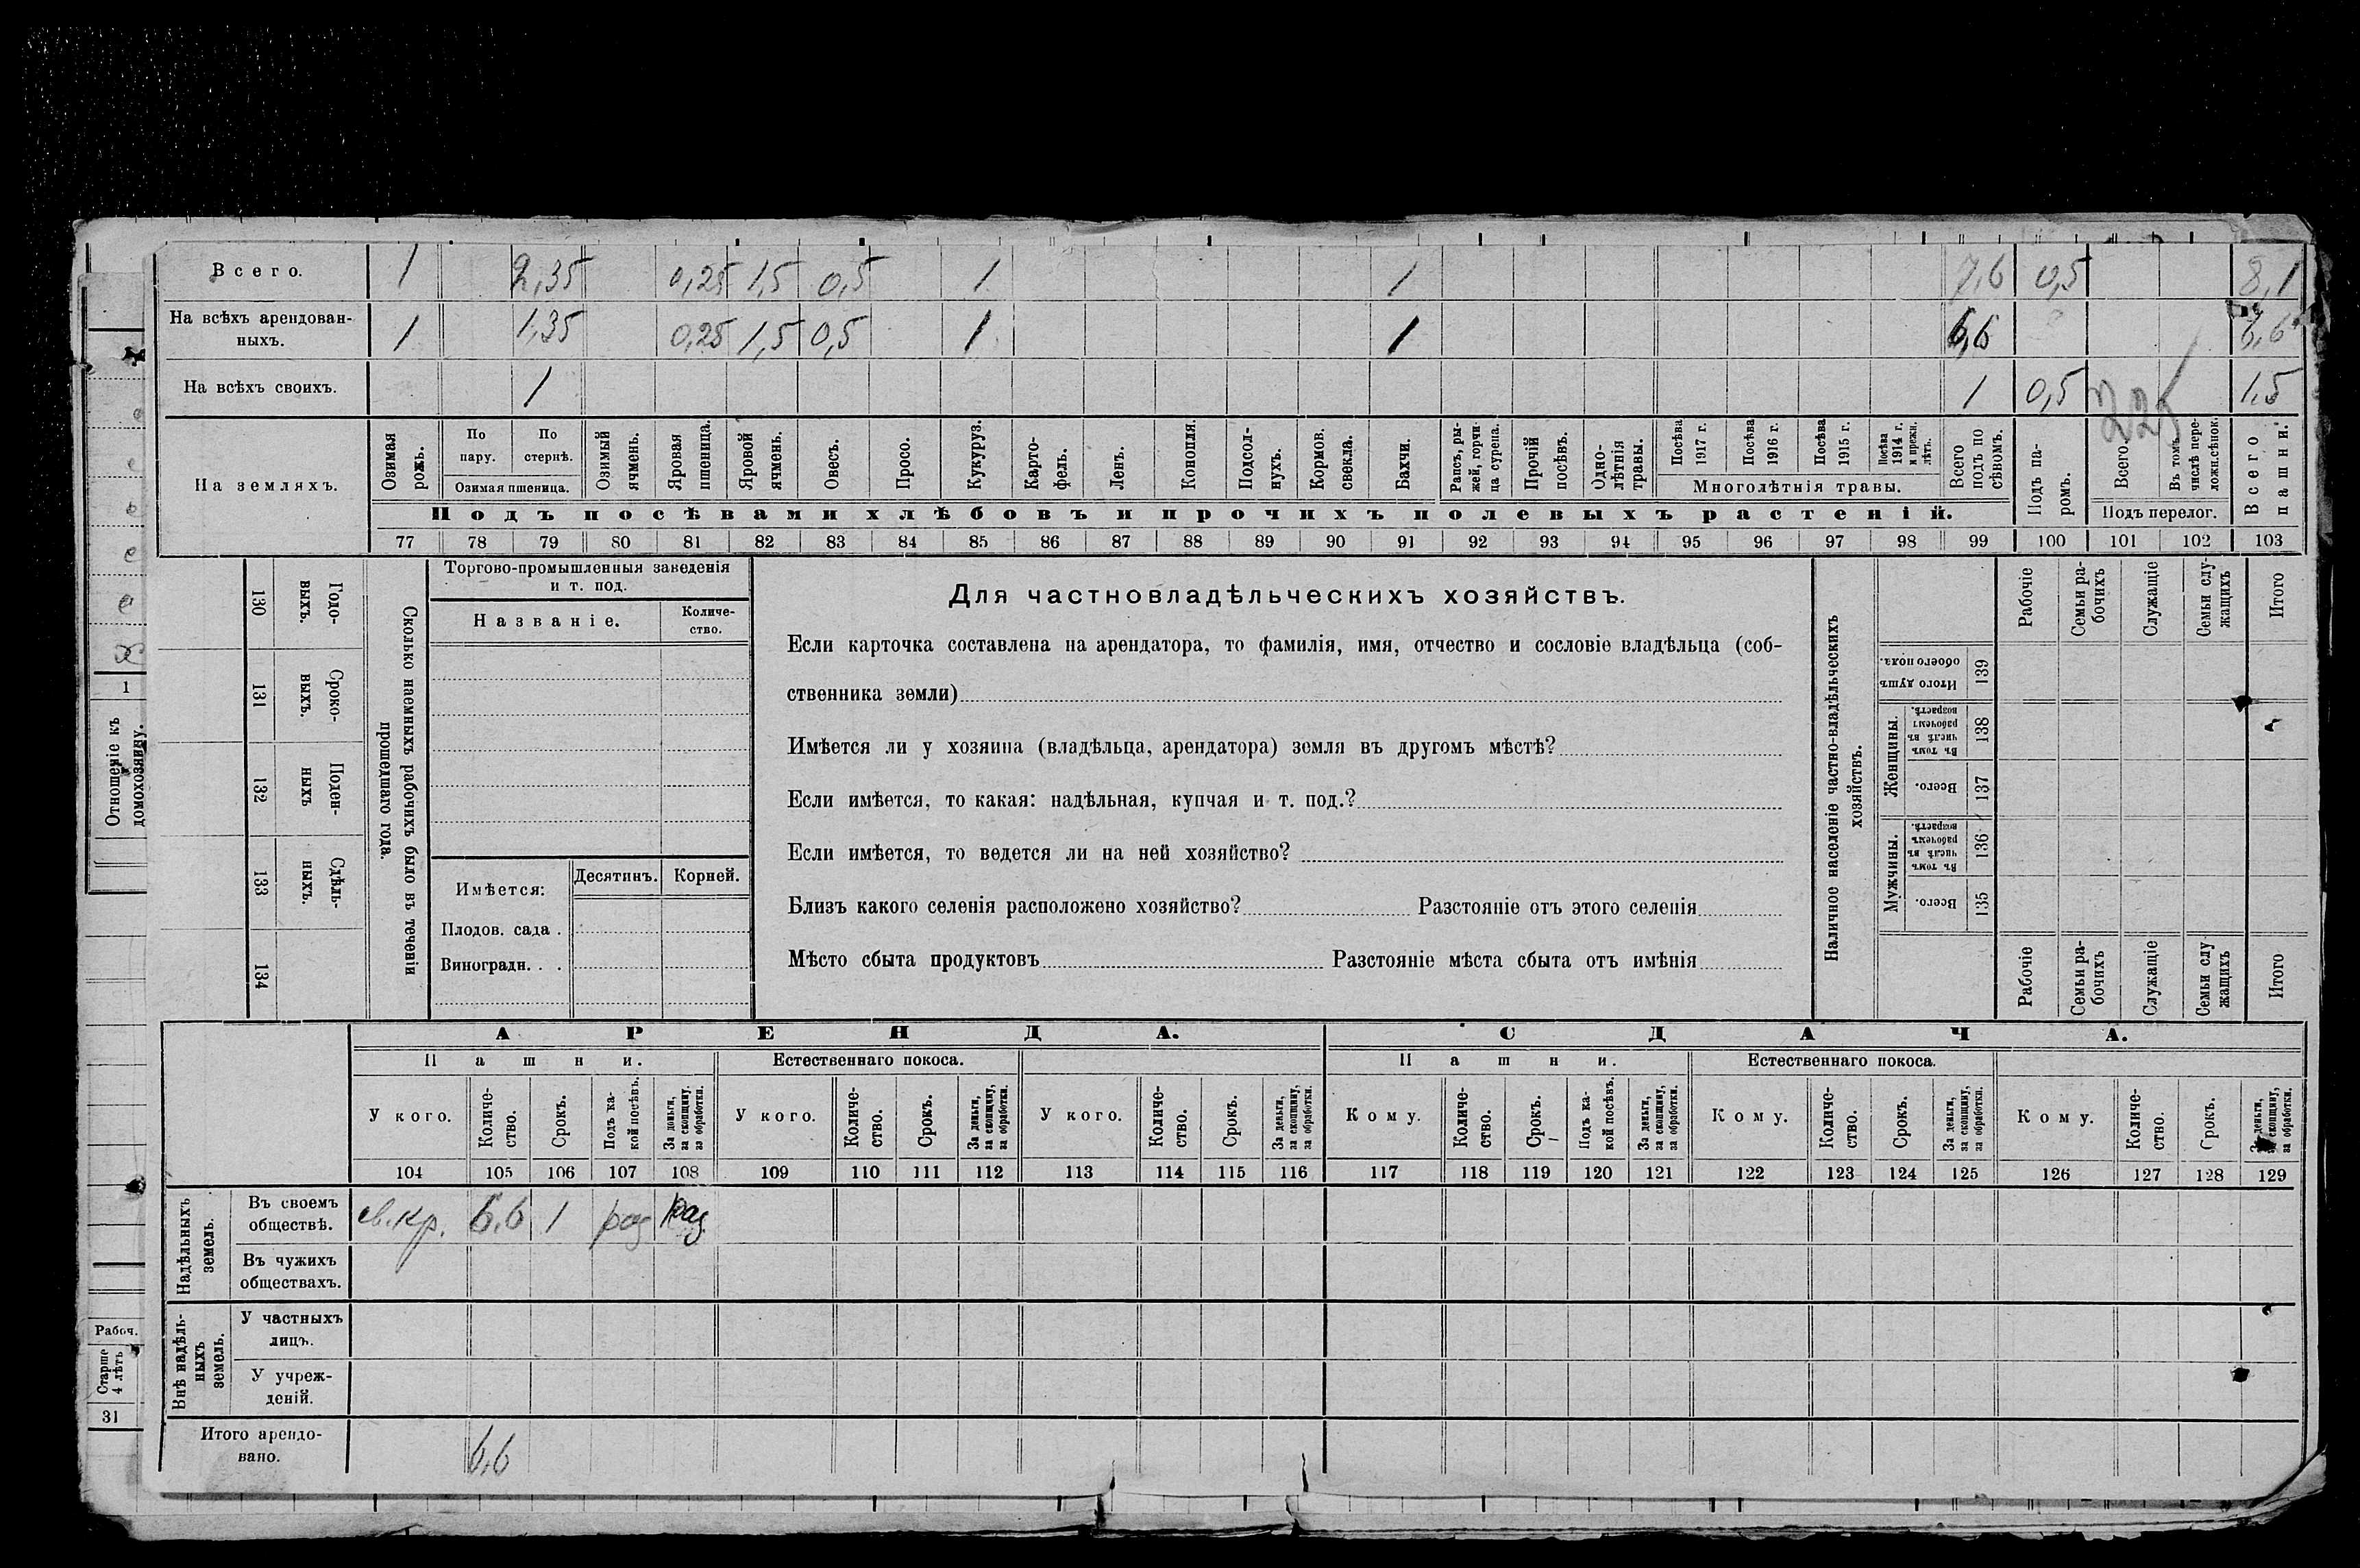 Всего. 1 2,35 0,25 1,5 0,5 1 1 7,6 0,5 8,1
На всѣхъ арендован- 1 1,35 0,25 1,5 0,5 1 1 6,6 6,6
ныхъ.
На всѣхъ своихъ. 1 1 0,5 1,5
225
На земляхъ.
Озимая рожь.
По пару.
По стернѣ.
Озимая пшеница.
Озимый ячмень.
Яровая пшеница.
Яровой ячмень.
Овесъ.
Просо.
Кукуруз.
Карто-
фель.
Ленъ.
Конопля.
Подсол-
нухъ.
Кормов. свекла.
Бахчи.
Рапсъ, ры-
жей, горчи-
ца сурепа.
Прочій посѣвъ.
Одно-
лѣтнія травы.
Посѣва 1917 г.
Посѣва 1916 г.
Посѣва 1915 г.
Посѣва 1914 г. и прежн. лѣтъ.
Многолѣтнія травы.
Всего подъ по
сѣвомъ.
Подъ па-
ромъ.
Всего.
Въ томъ числѣ пере-
ложн. сѣнок.
Подъ перелог.
Всего пашни.
Подъ посѣвами хлѣбовъ и прочихъ полевыхъ растеній.
77 78 79 80 81 82 83 84 85 86 87 88 89 90 91 92 93 94 95 96 97 98 99 100 101 102 103
130 Годо-
выхъ.
131 Сроко-
выхъ.
132 Поден-
ныхъ
133 Сдѣль-
ныхъ.
134
Сколько наемныхъ рабочихъ было въ теченіи
прошедшаго года.
Торгово-промышленныя заведенія
и т. под.
Названіе.
Количе-
ство.
Имѣется:
Десятинъ. Корней.
Плодов. сада .
Виноградн. . .
Для частновладѣльческихъ хозяйствъ.
Если карточка составлена на арендатора, то фамилія, имя, отчество и сословіе владѣльца (соб-
ственника земли)
Имѣется ли у хозяина (владѣльца, арендатора) земля въ другомъ мѣстѣ?
Если имѣется, то какая: надѣльная, купчая и т. под.?
Если имѣется, то ведется ли на ней хозяйство?
Близъ какого селенія расположено хозяйство? Разстояніе отъ этого селенія
Мѣсто сбыта продуктовъ Разстояніе мѣста сбыта отъ имѣнія
Наличное населеніе частно-владѣльческихъ
хозяйствъ.
Рабочіе
Семьи ра-
бочихъ
Служащіе
Семьи слу-
жащихъ
Итого
Итого душъ обоего пола. 139
Женщины.
Въ томъ числѣ въ рабочемъ возрастѣ. 138
Всего. 137
Мужчины.
Въ томъ числѣ въ рабочемъ возрастѣ. 136
Всего. 135
Рабочіе
Семьи ра-
бочихъ
Служащіе
Семьи слу
жащихъ
Итого
АРЕНДА. СДАЧА.
Пашни. Естественнаго покоса. Пашни. Естественнаго покоса.
У кого.
Количе-
ство.
Срокъ.
Подъ ка-
кой посѣвъ.
За деньги, за скопщину, за обработки.
У кого.
Количе-
ство.
Срокъ.
За деньги, за скопщину, за обработки.
У кого.
Количе-
ство.
Срокъ.
За деньги, за скопщину, за обработки.
Кому.
Количе-
ство.
Срокъ.
Подъ ка-
кой посѣвъ.
За деньги, за скопщину, за обработки.
Кому.
Количе-
ство.
Срокъ.
За деньги, за скопщину, за обработки.
Кому.
Количе-
ство.
Срокъ.
За деньги, за скопщину, за обработки.
104 105 106 107 108 109 110 111 112 113 114 115 116 117 118 119 120 121 122 123 124 125 126 127 128 129
Надѣльныхъ
земель.
Въ своемъ св.кр. 6.6 1
обществѣ.
Въ чужихъ
обществахъ.
Внѣ надѣль-
ныхъ
земель.
У частныхъ
лицъ.
У учреж-
деній.
Итого арендо- 6,6
вано.
1
Отношеніе къ
домохозяину.
Рабоч.
Старше
4 лѣтъ
31